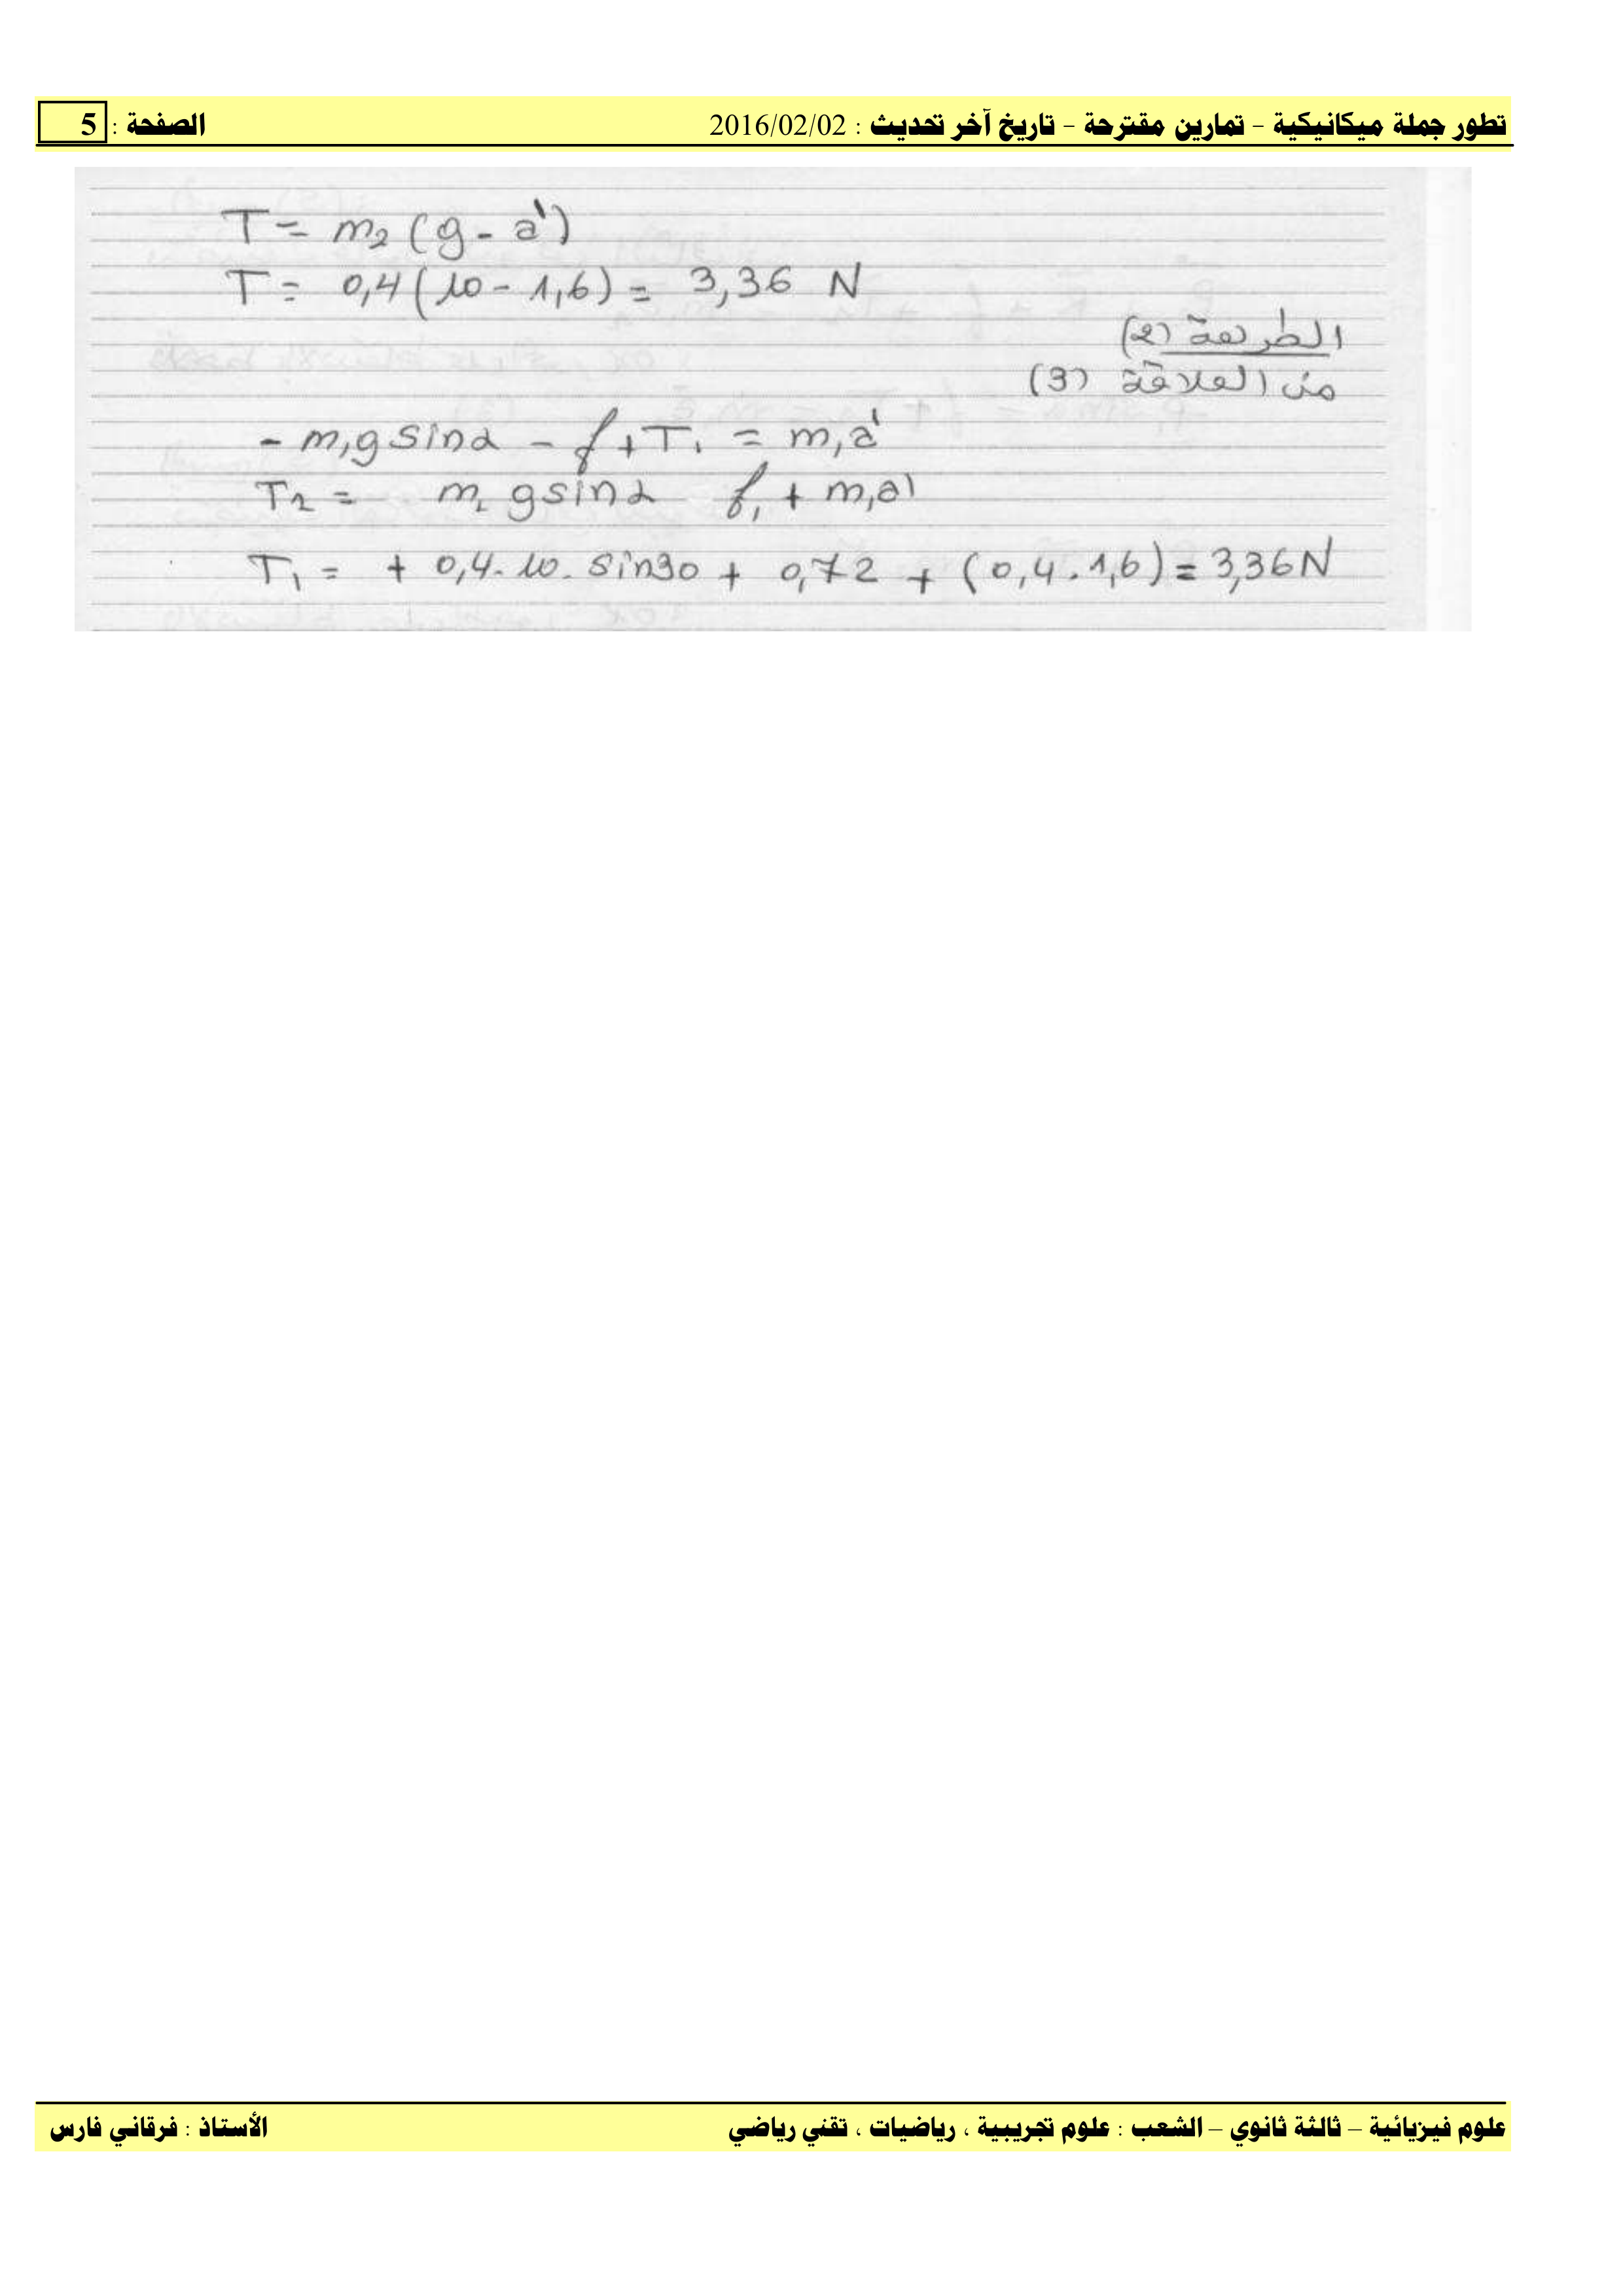 تطور جملة ميكانيكية - تمارين مقترحة - تاريخ آخر تحديث : 2016/02/02 الصفحة : 5
T = m₂ (g - a')
T = 0,4 (10 - 1,6) = 3,36 N
الطريقة (2)
من العلاقة (3)
- m₁g sinα - f + T₁ = m₁a'
T₂ = m₂ g sinα f₁ + m₁a'
T₁ = + 0,4 . 10 . sin30 + 0,72 + (0,4 . 1,6) = 3,36 N
علوم فيزيائية – ثالثة ثانوي – الشعب : علوم تجريبية ، رياضيات ، تقني رياضي الأستاذ : فرقاني فارس